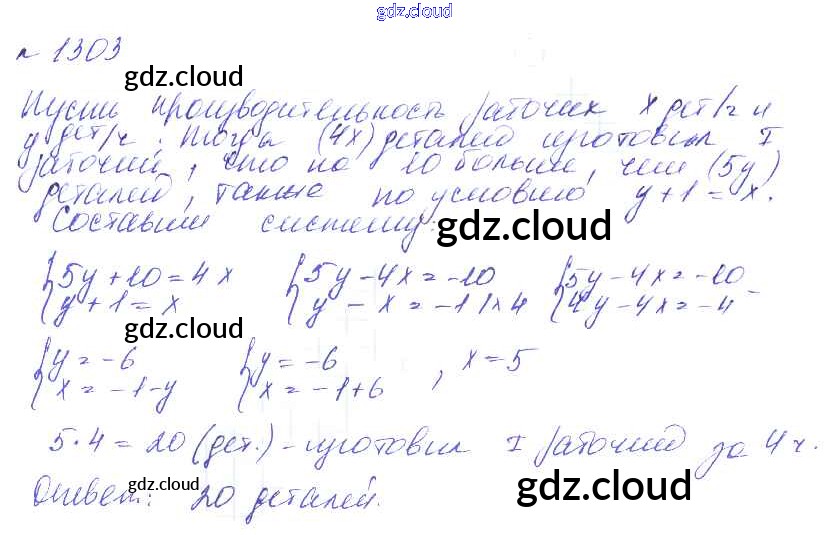 gdz.cloud
№ 1303
gdz.cloud
Пусть производительность рабочих x дет/ч и
y дет/ч. Тогда (4x) деталей изготовил I
рабочий, что на 10 больше, чем (5y)
деталей, также по условию y + 1 = x.
Составим систему:
gdz.cloud
{5y + 10 = 4x {5y - 4x = -10 {5y - 4x = -10
{y + 1 = x {y - x = -1 | × 4 {4y - 4x = -4 -
gdz.cloud
{y = -6 {y = -6
{x = -1 - y {x = -1 + 6 , x = 5
gdz.cloud
5 · 4 = 20 (дет.) - изготовил I рабочий за 4 ч.
Ответ: 20 деталей.
gdz.cloud
gdz.cloud